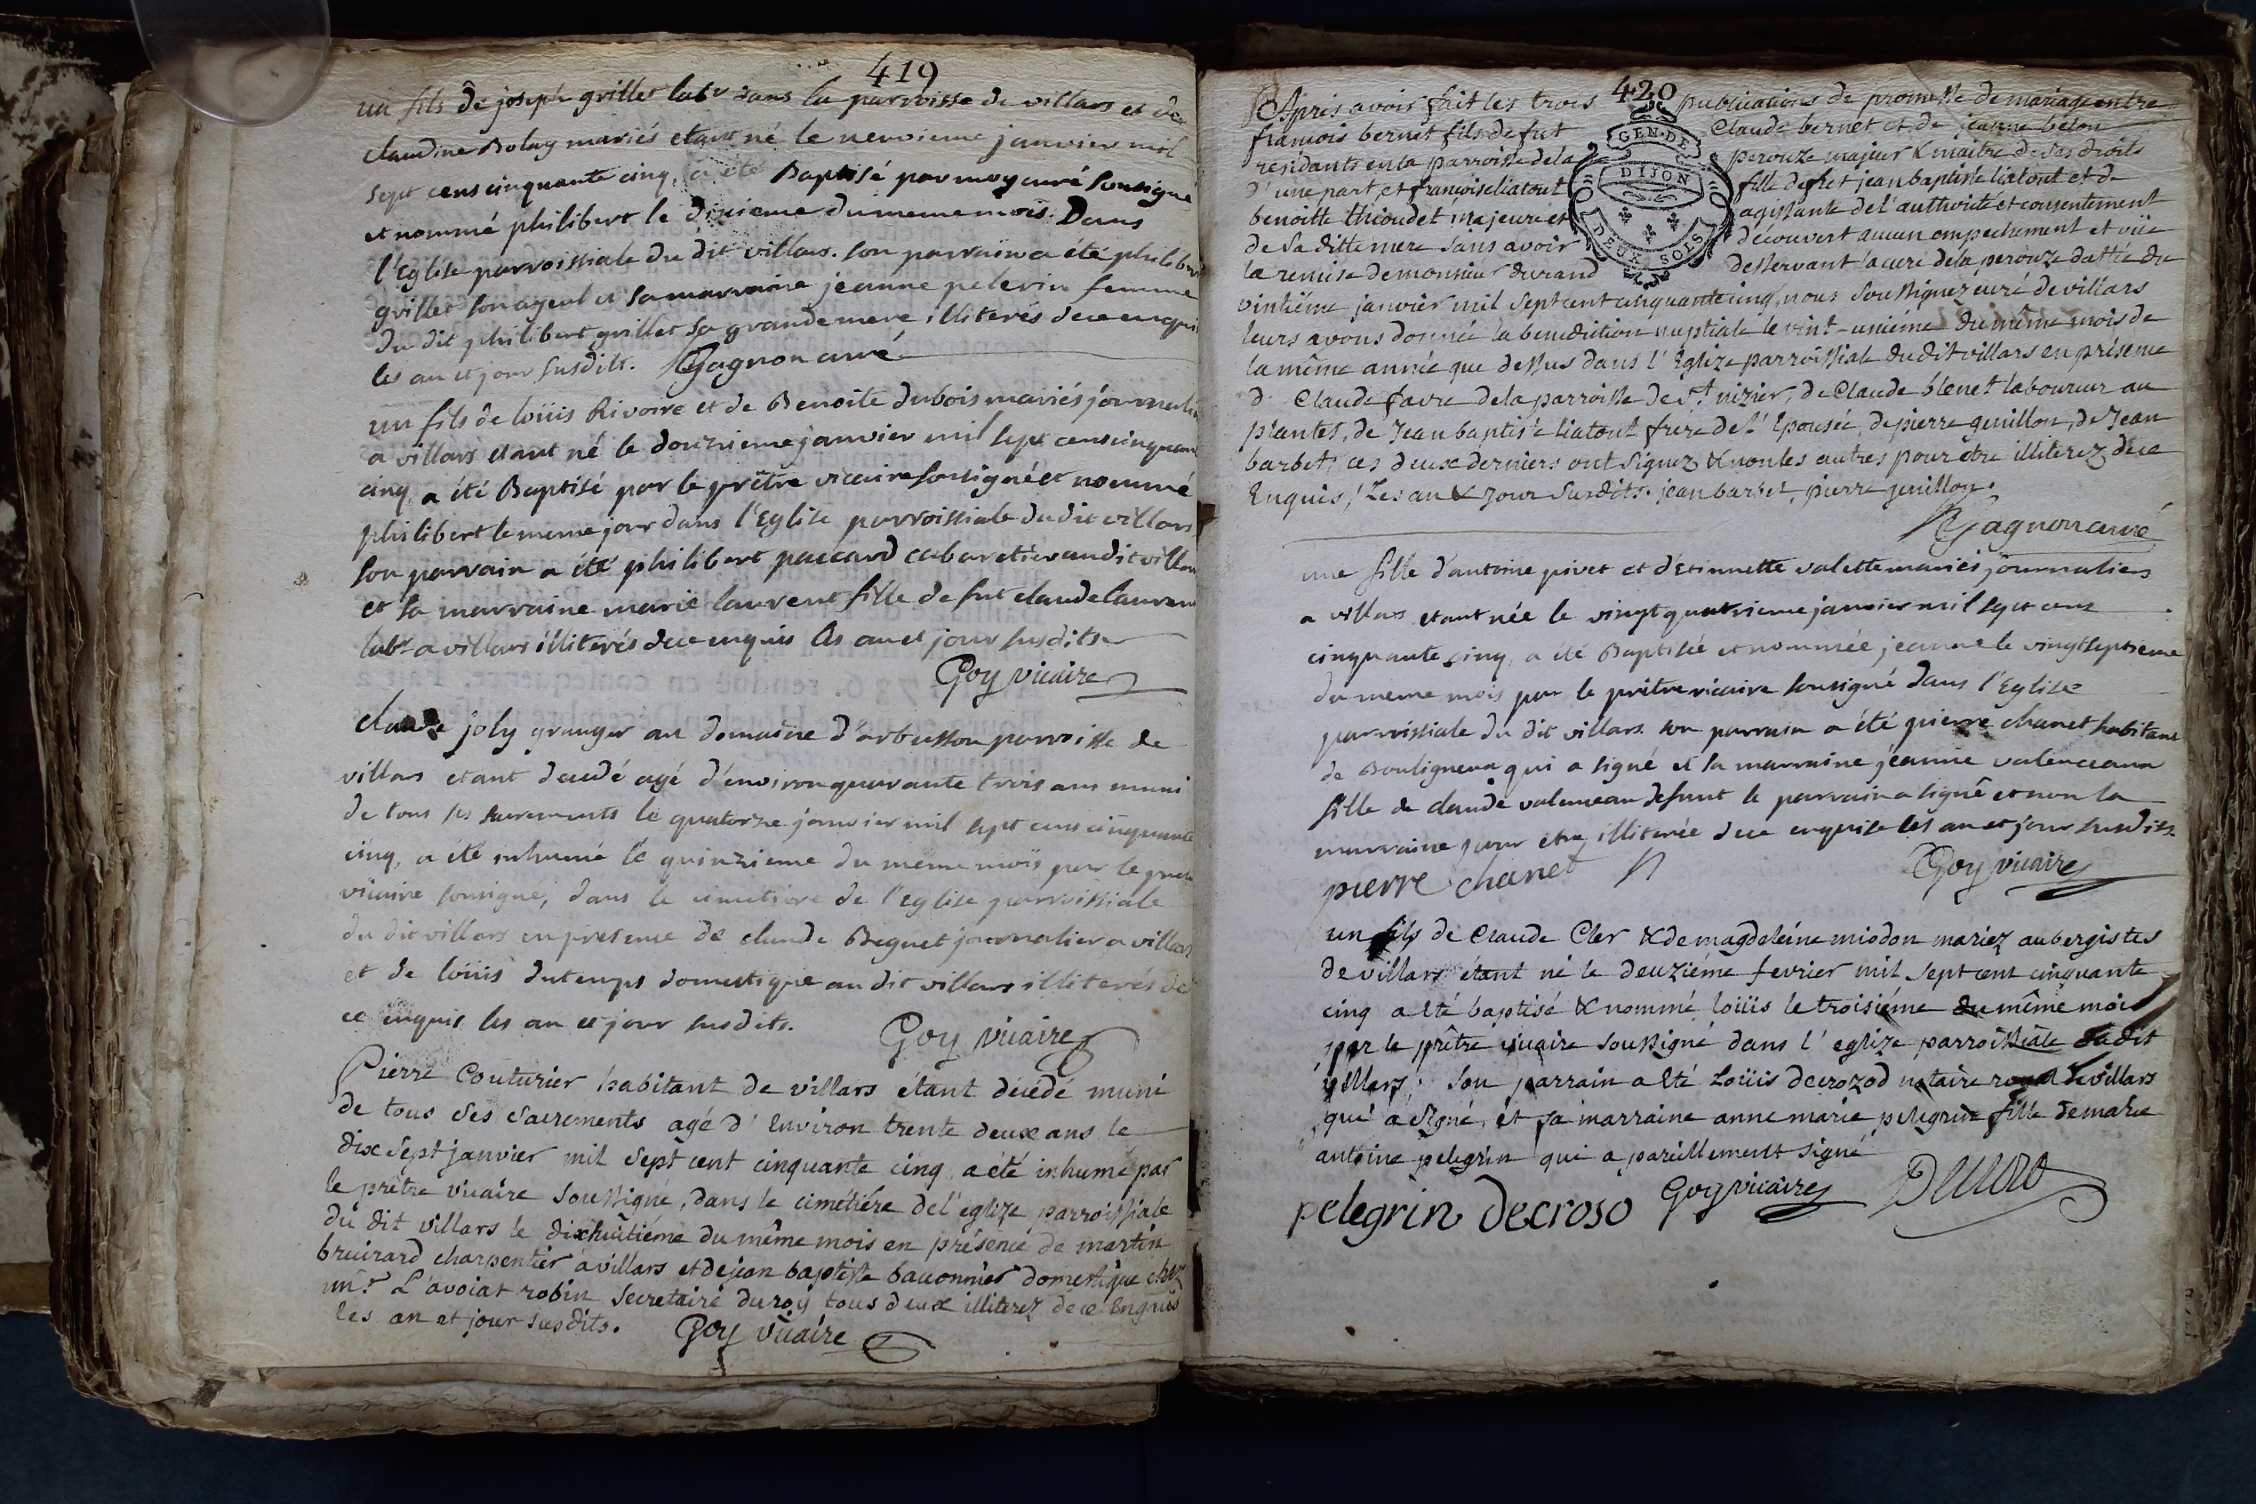 419
un fils de joseph grillet labr dans la parroisse de villars et de
claudine Bolay mariés etant né le neuvieme janvier mil
sept cens cinquante cinq, a été Baptisé par moy curé sousigné
et nommé philibert le dixieme du meme mois. Dans
l'Eglise parroissiale du dit villars. son parrain a été philibert
grillet son ayeul et sa marraine jeanne pelerin femme
du dit philibert grillet sa grande mere illiterés de ce enquis
les an et jour susdits. Gagnon curé
un fils de loüis Rivoire et de Benoite dubois mariés journaliers
a villars etant né le douzieme janvier mil sept cens cinquante
cinq, a été Baptisé par le prêtre vicaire sousigné et nommé
philibert le meme jour dans l'Eglise parroissiale du dit villars
son parrain a été philibert paccard cabaretier au dit villars
et sa marraine marie laurent fille de fut claude laurent
labr a villars illiterés de ce enquis les an et jour susdits
Goy vicaire
claude joly granger au domaine d'arbusson parroisse de
villars etant decedé agé d'environ quarante trois ans muni
de tous ses sacrements le quatorze janvier mil sept cens cinquante
cinq, a été inhumé le quinzieme du meme mois par le pretre
vicaire sousigné, dans le cimetiere de l'Eglise parroissiale
du dit villars en presence de claude Beguet journalier a villars
et de loüis dutemps domestique au dit villars illiterés de
ce enquis les an et jour susdits. Goy vicaire
Pierre Couturier habitant de villars étant décedé muni
de tous ses sacrements agé d'Environ trente deux ans le
dix sept janvier mil sept cent cinquante cinq, a été inhumé par
le prêtre vicaire soussigné, dans le cimetiére de l'eglize parroissiale
du dit villars le dixhuitiéme du même mois en présence de martin
bruirard charpentier à villars et de jean baptiste bauonnier domestique chez
mr. L'avoiat robin secretaire du roy tous deux illiterez de ce Enquis
les an et jour susdits. Goy vicaire
420
Après avoir fait les trois publications de promesse de mariage entre
francois bernet fils de fut Claude bernet et de jeanne belon
residants en la parroisse de la perouze majeur & maitre de ses droits
d'une part et françoise liatout fille de fut jean baptiste liatout et de
benoitte thioudet majeure et agissante de l'authorité et consentement
de sa ditte mere sans avoir découvert aucun empechement et vüe
la remise de monsieur durand desservant la cure de la perouze dattée du
vintiéme janvier mil sept cent cinquante cinq, nous soussignez curé de villars
leurs avons donné la benediction nuptiale le vint-uniéme du même mois de
la même année que dessus dans l'Eglize parroissiale du dit villars en présence
d Claude favre de la parroisse de St nizier, de Claude blenet laboureur au
plantes, de Jean baptiste liatout frere de l'Epousée, de pierre genillon, de Jean
barbet; ces deux derniers ont signez & non les autres pour etre illiterez de ce
Enquis, Les an & jour susdits. jean barbet, pierre genillon.
Gagnon curé
GEN. DE
DIJON
DEUX SOLS
une fille d'antoine pivet et d'Etiennette valette mariés journaliers
a villars etant née le vingt quatrieme janvier mil sept cens
cinquante cinq, a été Baptisée et nommée jeanne le vingt septieme
du meme mois par le prêtre vicaire sousigné dans l'Eglise
parroissiale du dit villars. son parrain a été pierre chanet habitant
de Bouligneux qui a signé et sa marraine jeanne valenceaux
fille de claude valenceau defunt le parrain a signé et non la
marraine pour etre illiterée de ce enquise les an et jour susdits.
pierre chanet Goy vicaire
un fils de Claude Cler & de magdeleine miodon mariez aubergistes
de villars étant né le deuziéme fevrier mil sept cent cinquante
cinq a Eté baptisé & nommé loüis le troisiéme du même mois
par le prêtre vicaire soussigné dans l'eglize parroissiale du dit
villars. Son parrain a Eté Loüis decrozod notaire royal de villars
qui a signé, et sa marraine anne marie pelegrin fille de marc
antoine pelegrin qui a pareillement signé
pelegrin Decroso Goy vicaire